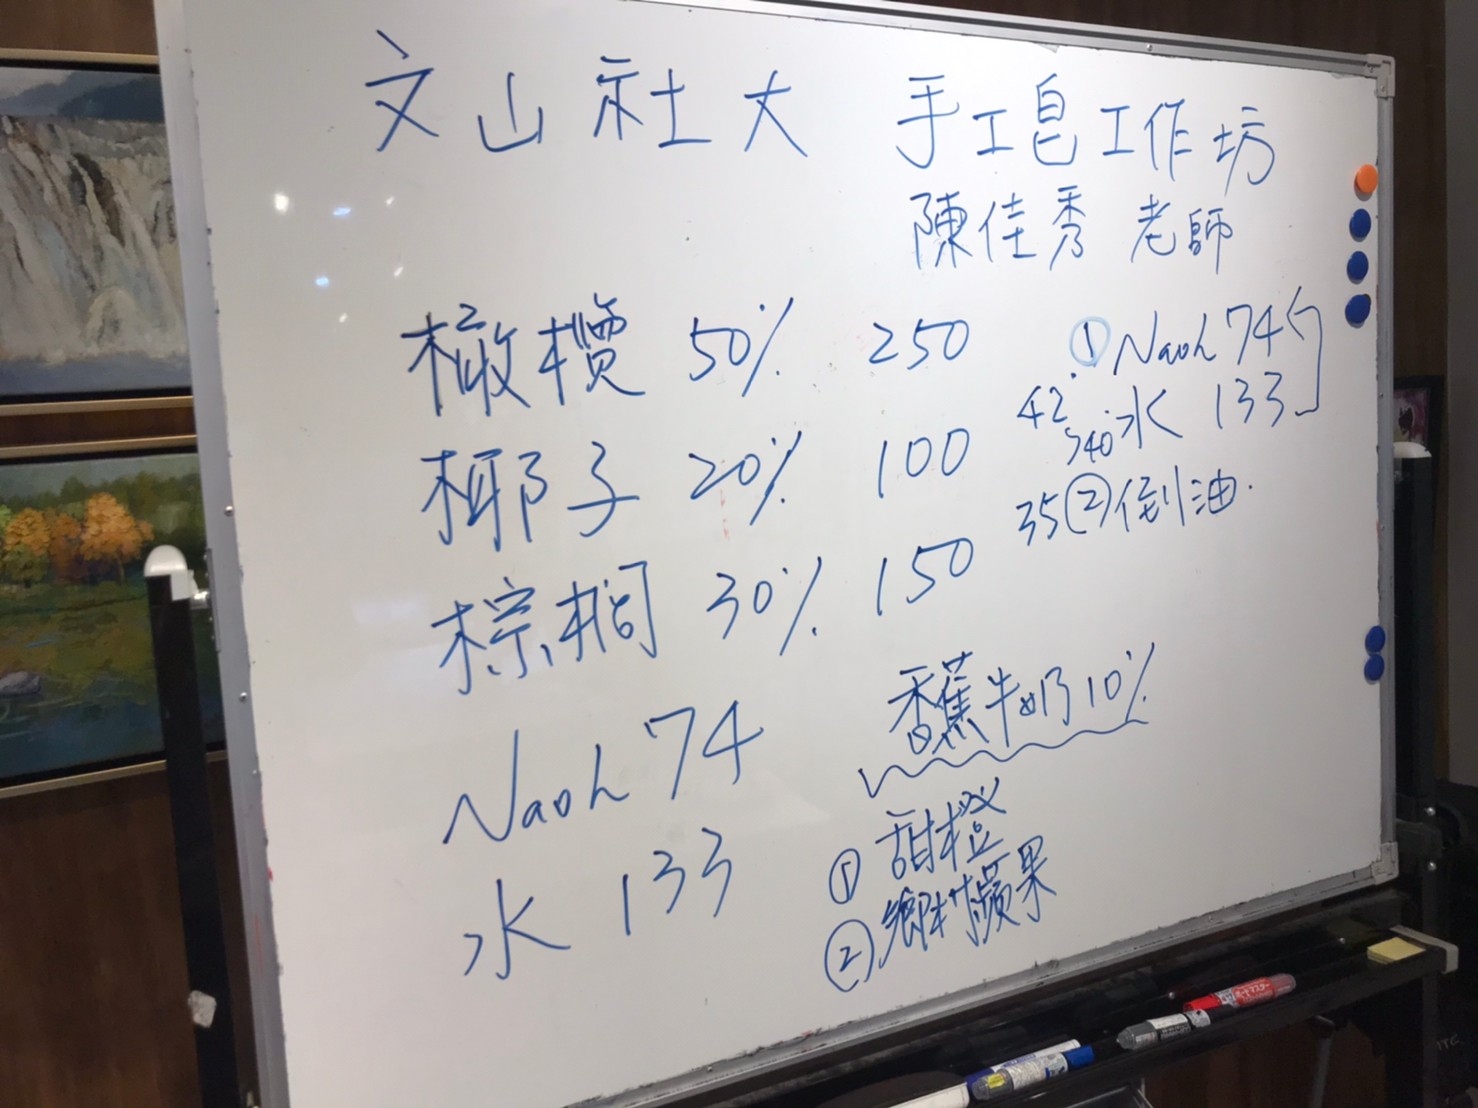 文山社大 手工皂工作坊
陳佳秀 老師
橄欖 50% 250
椰子 20% 100
棕櫚 30% 150
Naoh 74
水 133
① Naoh 74
42 >40 水 133
35 ② 倒油.
香蕉牛奶 10%
① 甜橙
② 鄉村蘋果